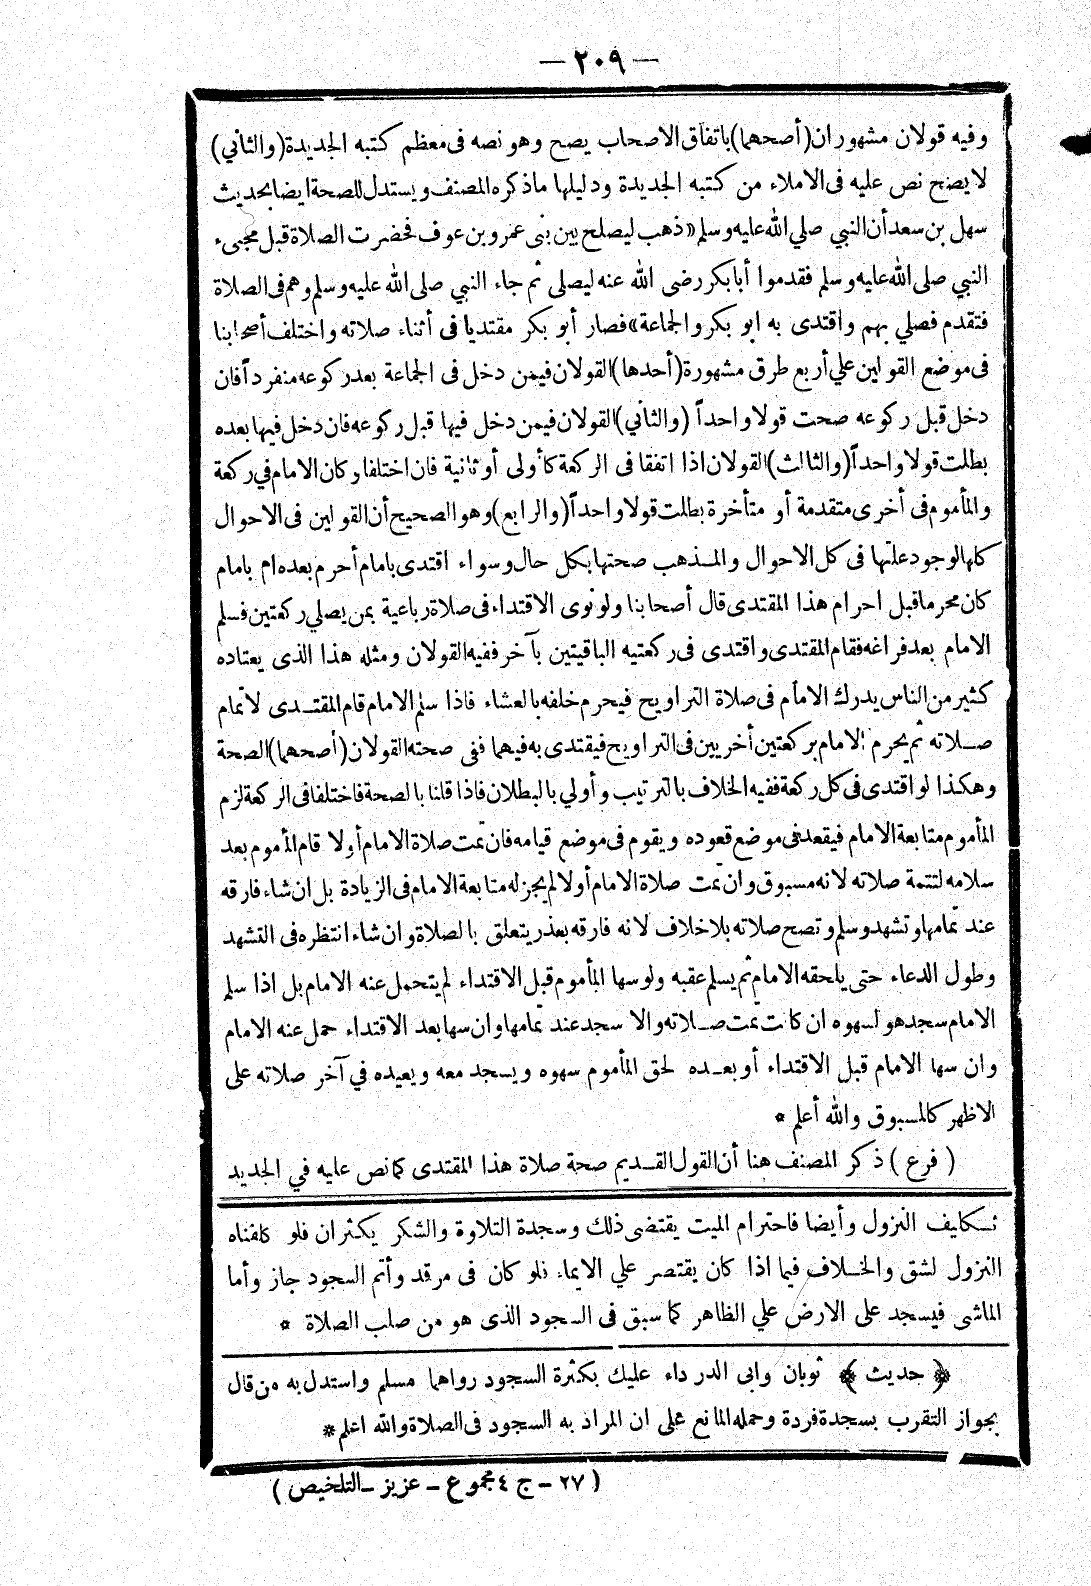 — ٢٠٩ —
وفيه قولان مشهوران (أصحهما) باتفاق الاصحاب يصح وهو نصه فى معظم كتبه الجديدة (والثاني)
لا يصح نص عليه فى الاملاء من كتبه الجديدة ودليلها ماذكره المصنف ويستدل للصحة ايضا بحديث
سهل بن سعد أن النبي صلي الله عليه وسلم «ذهب ليصلح بين بنى عمرو بن عوف فحضرت الصلاة قبل مجىء
النبي صلى الله عليه وسلم فقدموا أبا بكر رضى الله عنه ليصلى ثم جاء النبي صلى الله عليه وسلم وهم فى الصلاة
فتقدم فصلي بهم واقتدى به ابو بكر والجماعة» فصار أبو بكر مقتديا فى أثناء صلاته واختلف أصحابنا
فى موضع القولين علي أربع طرق مشهورة (أحدها) القولان فيمن دخل فى الجماعة بعد ركوعه منفرداً فان
دخل قبل ركوعه صحت قولا واحداً (والثاني) القولان فيمن دخل فيها قبل ركوعه فان دخل فيها بعده
بطلت قولا واحداً (والثالث) القولان اذا اتفقا فى الركعة كأولى أو ثانية فان اختلفا وكان الامام في ركعة
والمأموم فى أخرى متقدمة أو متأخرة بطلت قولا واحداً (والرابع) وهو الصحيح أن القولين فى الاحوال
كلها لوجود علتها فى كل الاحوال والمـذهب صحتها بكل حال وسواء اقتدى بامام أحرم بعده ام بامام
كان محرما قبل احرام هذا المقتدى قال أصحابنا ولو نوى الاقتداء فى صلاة رباعية بمن يصلي ركعتين فسلم
الامام بعد فراغه فقام المقتدى واقتدى فى ركعتيه الباقيتين بآخر ففيه القولان ومثله هذا الذى يعتاده
كثير من الناس يدرك الامام فى صلاة التراويح فيحرم خلفه بالعشاء فاذا سلم الامام قام المقتـدى لاتمام
صـلاته ثم يحرم الامام بركعتين أخريين فى التراويح فيقتدى به فيهما ففى صحته القولان (أصحهما) الصحة
وهكذا لو اقتدى فى كل ركعة ففيه الخلاف بالترتيب وأولي بالبطلان فاذا قلنا بالصحة فاختلفا فى الركعة لزم
المأموم متابعة الامام فيقعد فى موضع قعوده ويقوم فى موضع قيامه فان تمت صلاة الامام أولا قام المأموم بعد
سلامه لتتمة صلاته لانه مسبوق وان تمت صلاة الامام أولا لم يجز له متابعة الامام فى الزيادة بل ان شاء فارقه
عند تمامها وتشهد وسلم وتصح صلاته بلا خلاف لانه فارقه بعذر يتعلق بالصلاة وان شاء انتظره فى التشهد
وطول الدعاء حتى يلحقه الامام ثم يسلم عقبه ولو سها المأموم قبل الاقتداء لم يتحمل عنه الامام بل اذا سلم
الامام سجد هو لسهوه ان كانت تمت صـلاته والا سجد عند تمامها وان سها بعد الاقتداء حمل عنه الامام
وان سها الامام قبل الاقتداء أو بعـده لحق المأموم سهوه ويسجد معه ويعيده في آخر صلاته على
الاظهر كالمسبوق والله أعلم *
( فرع ) ذكر المصنف هنا أن القول القـديم صحة صلاة هذا المقتدى كما نص عليه في الجديد
تـكليف النزول وأيضا فاحترام الميت يقتضى ذلك وسجدة التلاوة والشكر يكثران فلو كلفناه
النزول لشق والخـلاف فيما اذا كان يقتصر علي الايماء فلو كان فى مرقد وأتم السجود جاز وأما
الماشى فيسجد على الارض علي الظاهر كما سبق فى السجود الذى هو من صلب الصلاة *
﴿ حديث ﴾ * ثوبان وابى الدرداء عليك بكثرة السجود رواهما مسلم واستدل به من قال
بجواز التقرب بسجدة فردة وحمله المانع على ان المراد به السجود فى الصلاة والله اعلم *
( ٢٧ – ج ٤ مجموع – عزيز – التلخيص )